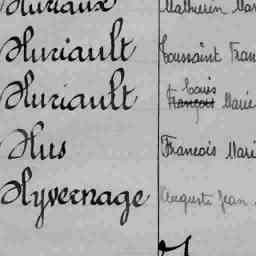 Huriaux Mathurin Mar
Huriault Toussaint Fran
Huriault Louis François Marie
Hus François Mari
Hyvernage Auguste Jean